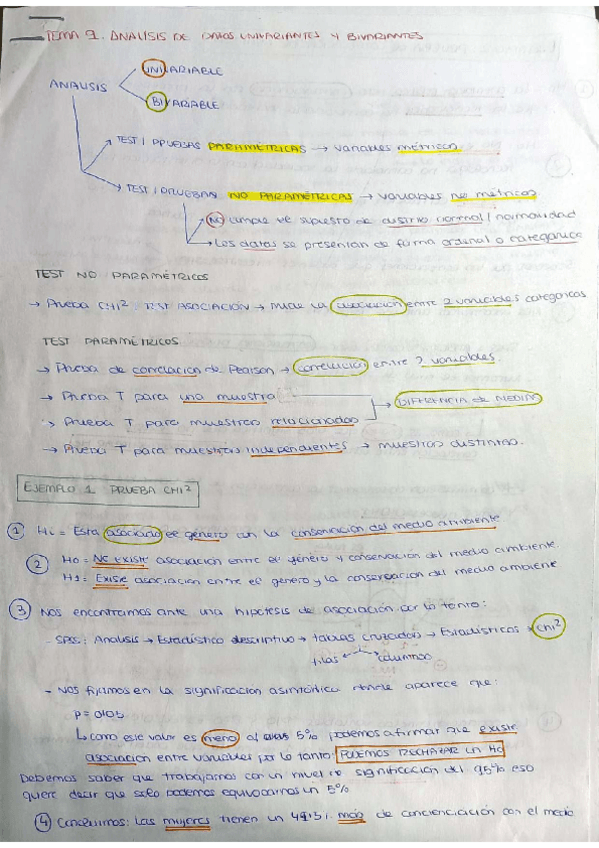 TEMA 9. ANALISIS DE DATOS UNIVARIANTES Y BIVARIANTES
UNIVARIABLE
ANALISIS
BIVARIABLE
TEST / PRUEBAS PARAMÉTRICAS → variables métricas
TEST / PRUEBAS NO PARAMÉTRICAS → variables no métricas
NO cumple el supuesto de distrib normal / normalidad
Los datos se presentan de forma ordinal o categórica
TEST NO PARAMÉTRICOS
→ Prueba CHI² TEST ASOCIACIÓN → mide la asociación entre 2 variables categoricas
TEST PARAMÉTRICOS
→ Prueba de correlación de Pearson → correlación entre 2 variables.
→ Prueba T para una muestra
→ DIFERENCIA de MEDIAS
→ Prueba T para muestras relacionadas
→ Prueba T para muestras independientes → muestras distintas.
EJEMPLO 1 PRUEBA CHI²
① Hi = Esta asociado el género con la conservación del medio ambiente
② Ho = No existe asociación entre el género y conservación del medio ambiente
H1 = Existe asociación entre el género y la conservación del medio ambiente
③ Nos encontramos ante una hipótesis de asociación por lo tanto:
- SPSS: Analisis → Estadístico descriptivo → tablas cruzadas → Estadísticos → Chi²
filas columnas
- Nos fijamos en la significación asintótica donde aparece que:
↳ como este valor es menor al 5% podemos afirmar que existe
asociación entre variables por lo tanto: PODEMOS RECHAZAR LA Ho
Debemos saber que trabajamos con un nivel de significación del 95% eso
quiere decir que solo podemos equivocarnos un 5%
④ Concluimos: Las mujeres tienen un más de concienciación con el medio